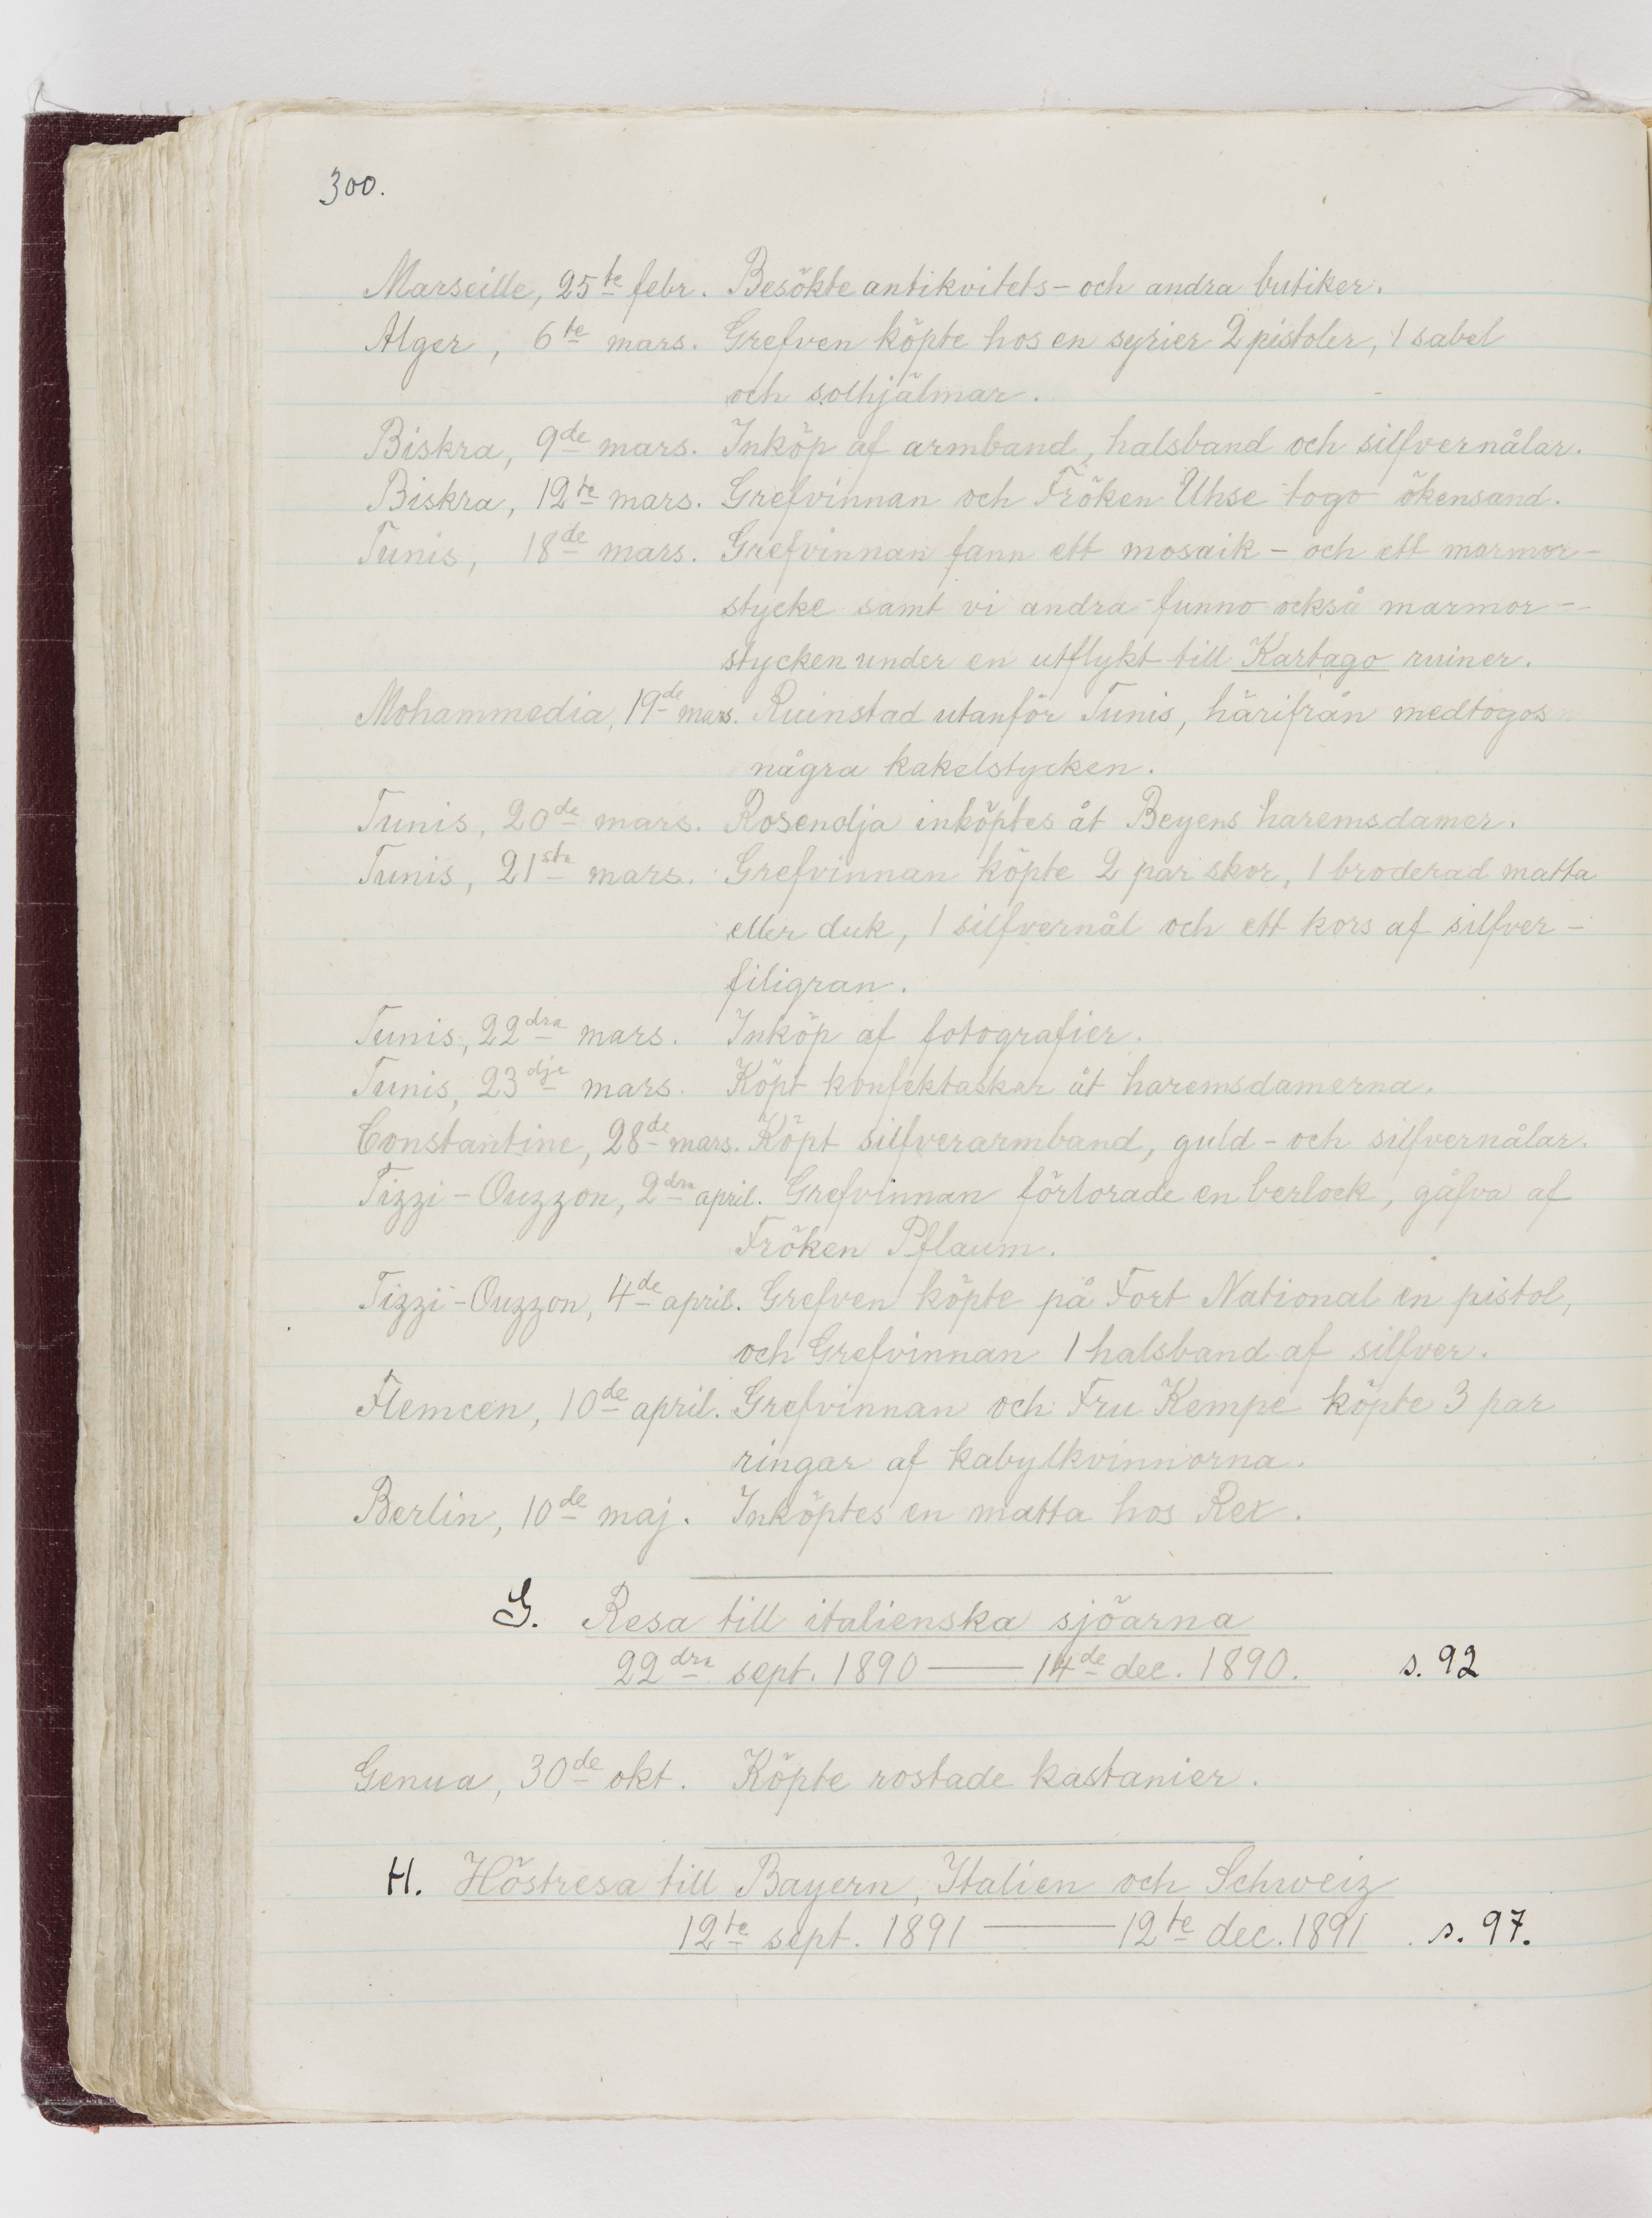 300.
Marseille, 25te febr. Besökte antikvitets- och andra butiker.
Alger, 6te mars. Grefven köpte hos en syrier 2 pistoler, 1 sabel
och solhjälmar.
Biskra, 9de mars. Inköp af armband, halsband och silfvernålar.
Biskra, 12te mars. Grefvinnan och Fröken Uhse togo ökensand.
Tunis, 18de mars. Grefvinnan fann ett mosaik- och ett marmor-
stycke samt vi andra funno också marmor-
stycken under en utflykt till Kartago ruiner.
Mohammedia, 19de mars. Ruinstad utanför Tunis, härifrån medtogos
några kakelstycken.
Tunis, 20de mars. Rosenolja inköptes åt Beyens haremsdamer.
Tunis, 21sta mars. Grefvinnan köpte 2 par skor, 1 broderad matta
eller duk, 1 silfvernål och ett kors af silfver-
filigran.
Tunis, 22dra mars. Inköp af fotografier.
Tunis, 23dje mars. Köpt konfektaskar åt haremsdamerna.
Constantine, 28de mars. Köpt silfverarmband, guld- och silfvernålar.
Tizzi-Ouzzon, 2dra april. Grefvinnan förlorade en berlock, gåfva af
Fröken Pflaum.
Tizzi-Ouzzon, 4de april. Grefven köpte på Fort National en pistol,
och Grefvinnan 1 halsband af silfver.
Flemcen, 10de april. Grefvinnan och Fru Kempe köpte 3 par
ringar af kabylkvinnorna.
Berlin, 10de maj. Inköptes en matta hos Rex.
G. Resa till italienska sjöarna
22dra sept. 1890 — 14de dec. 1890. s. 92
Genua, 30de okt. Köpte rostade kastanier.
H. Höstresa till Bayern, Italien och Schweiz
12te sept. 1891 — 12te dec. 1891 s. 97.